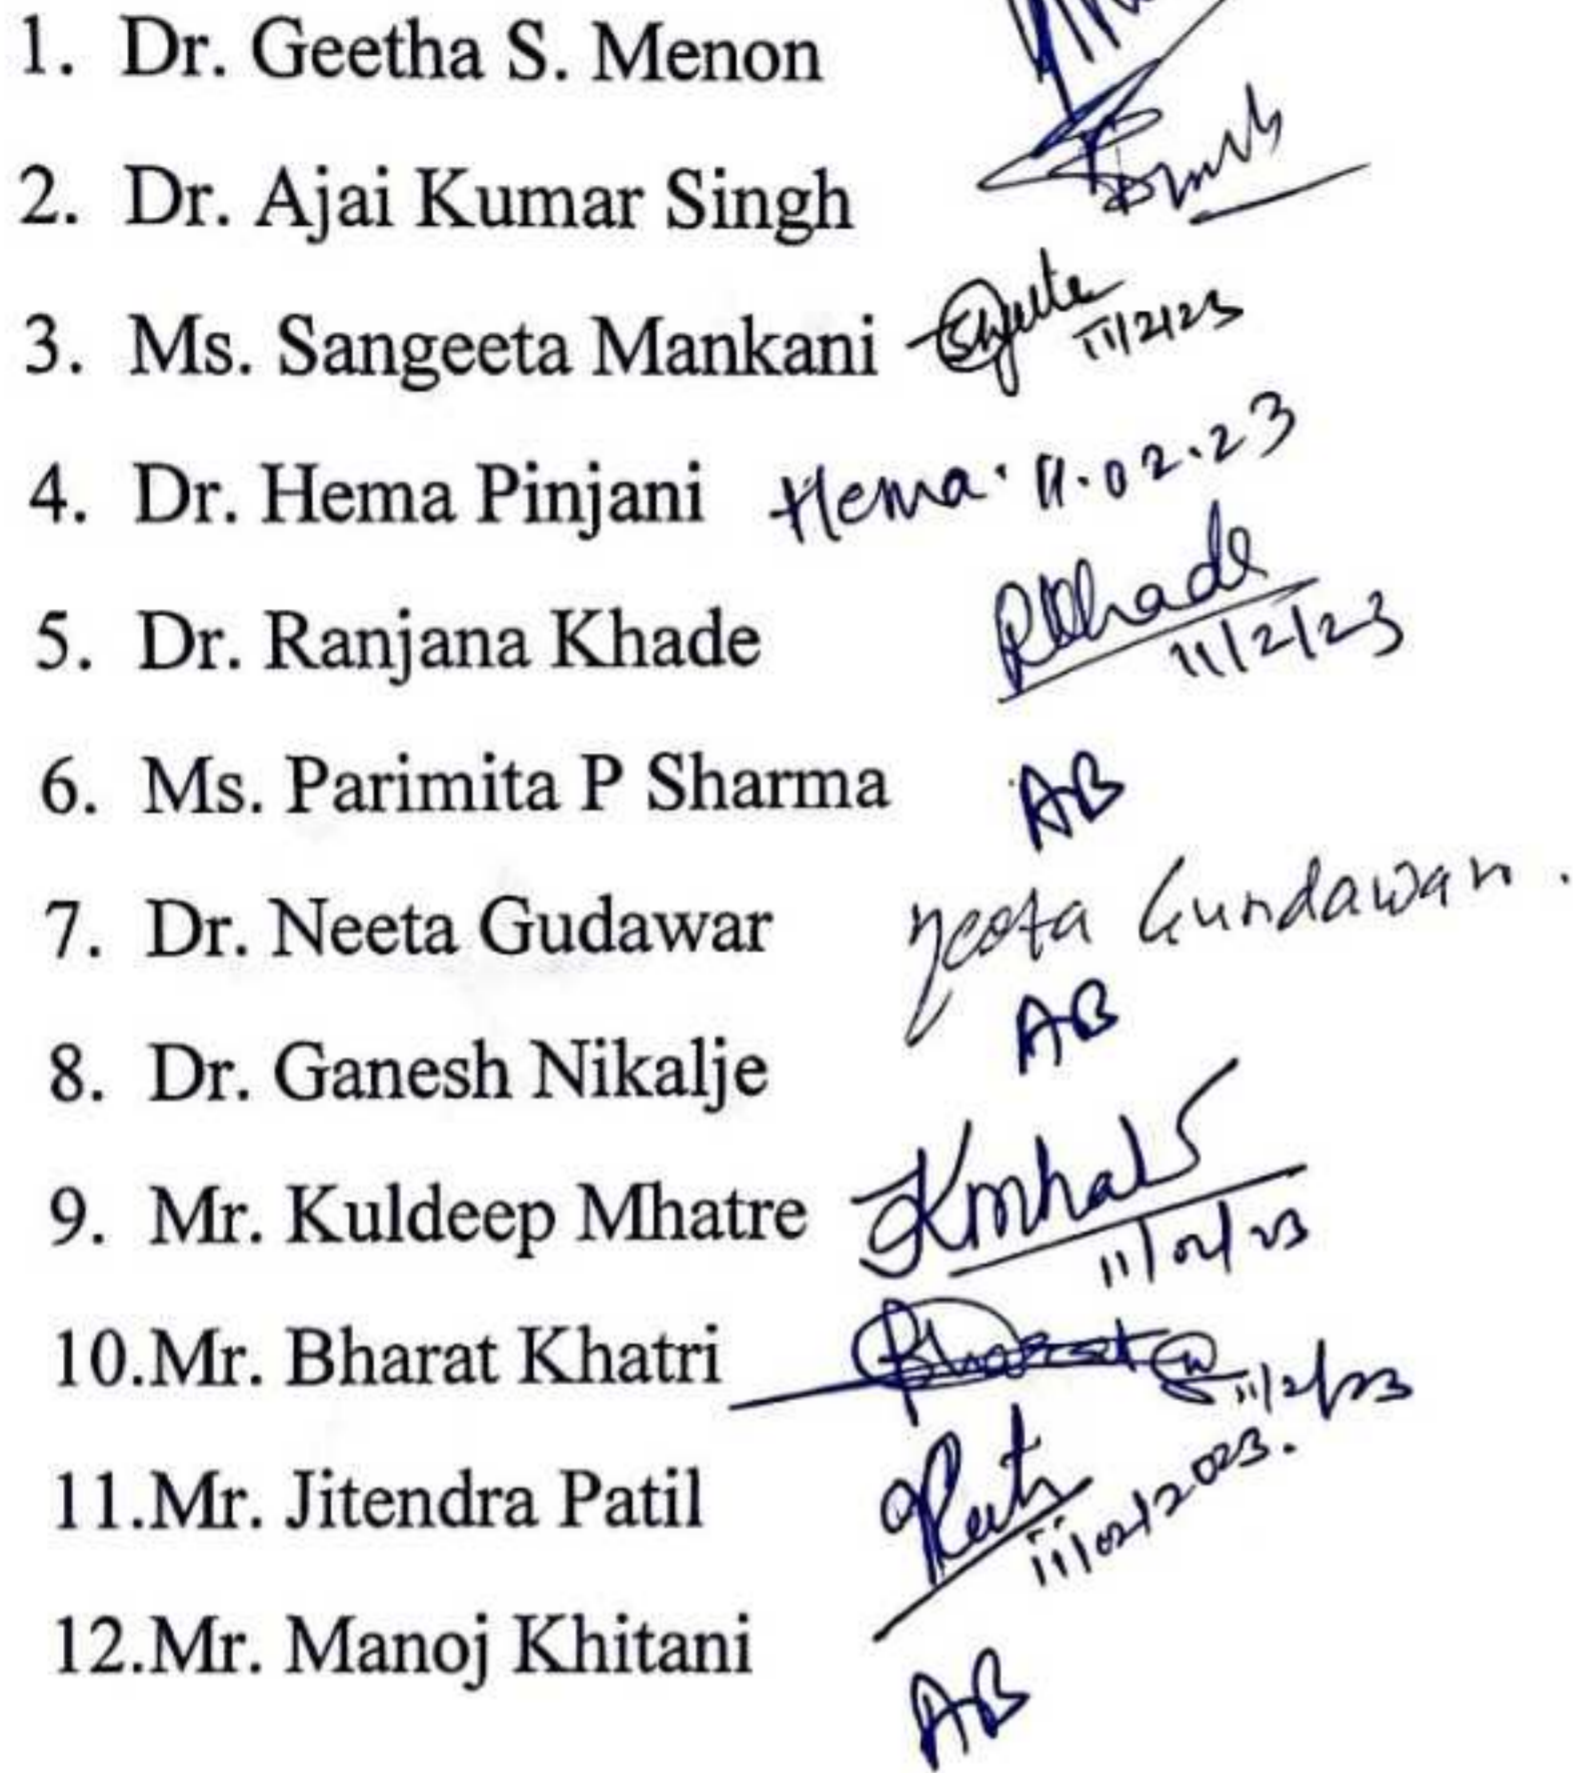 1. Dr. Geetha S. Menon
2. Dr. Ajai Kumar Singh
3. Ms. Sangeeta Mankani 11/2/23
4. Dr. Hema Pinjani Hema. 11.02.23
5. Dr. Ranjana Khade RKhade 11/2/23
6. Ms. Parimita P Sharma AB
7. Dr. Neeta Gudawar Neeta Gundawar.
8. Dr. Ganesh Nikalje AB
9. Mr. Kuldeep Mhatre 11/02/23
10.Mr. Bharat Khatri Bharat 11/2/23
11.Mr. Jitendra Patil 11/02/2023.
12.Mr. Manoj Khitani AB